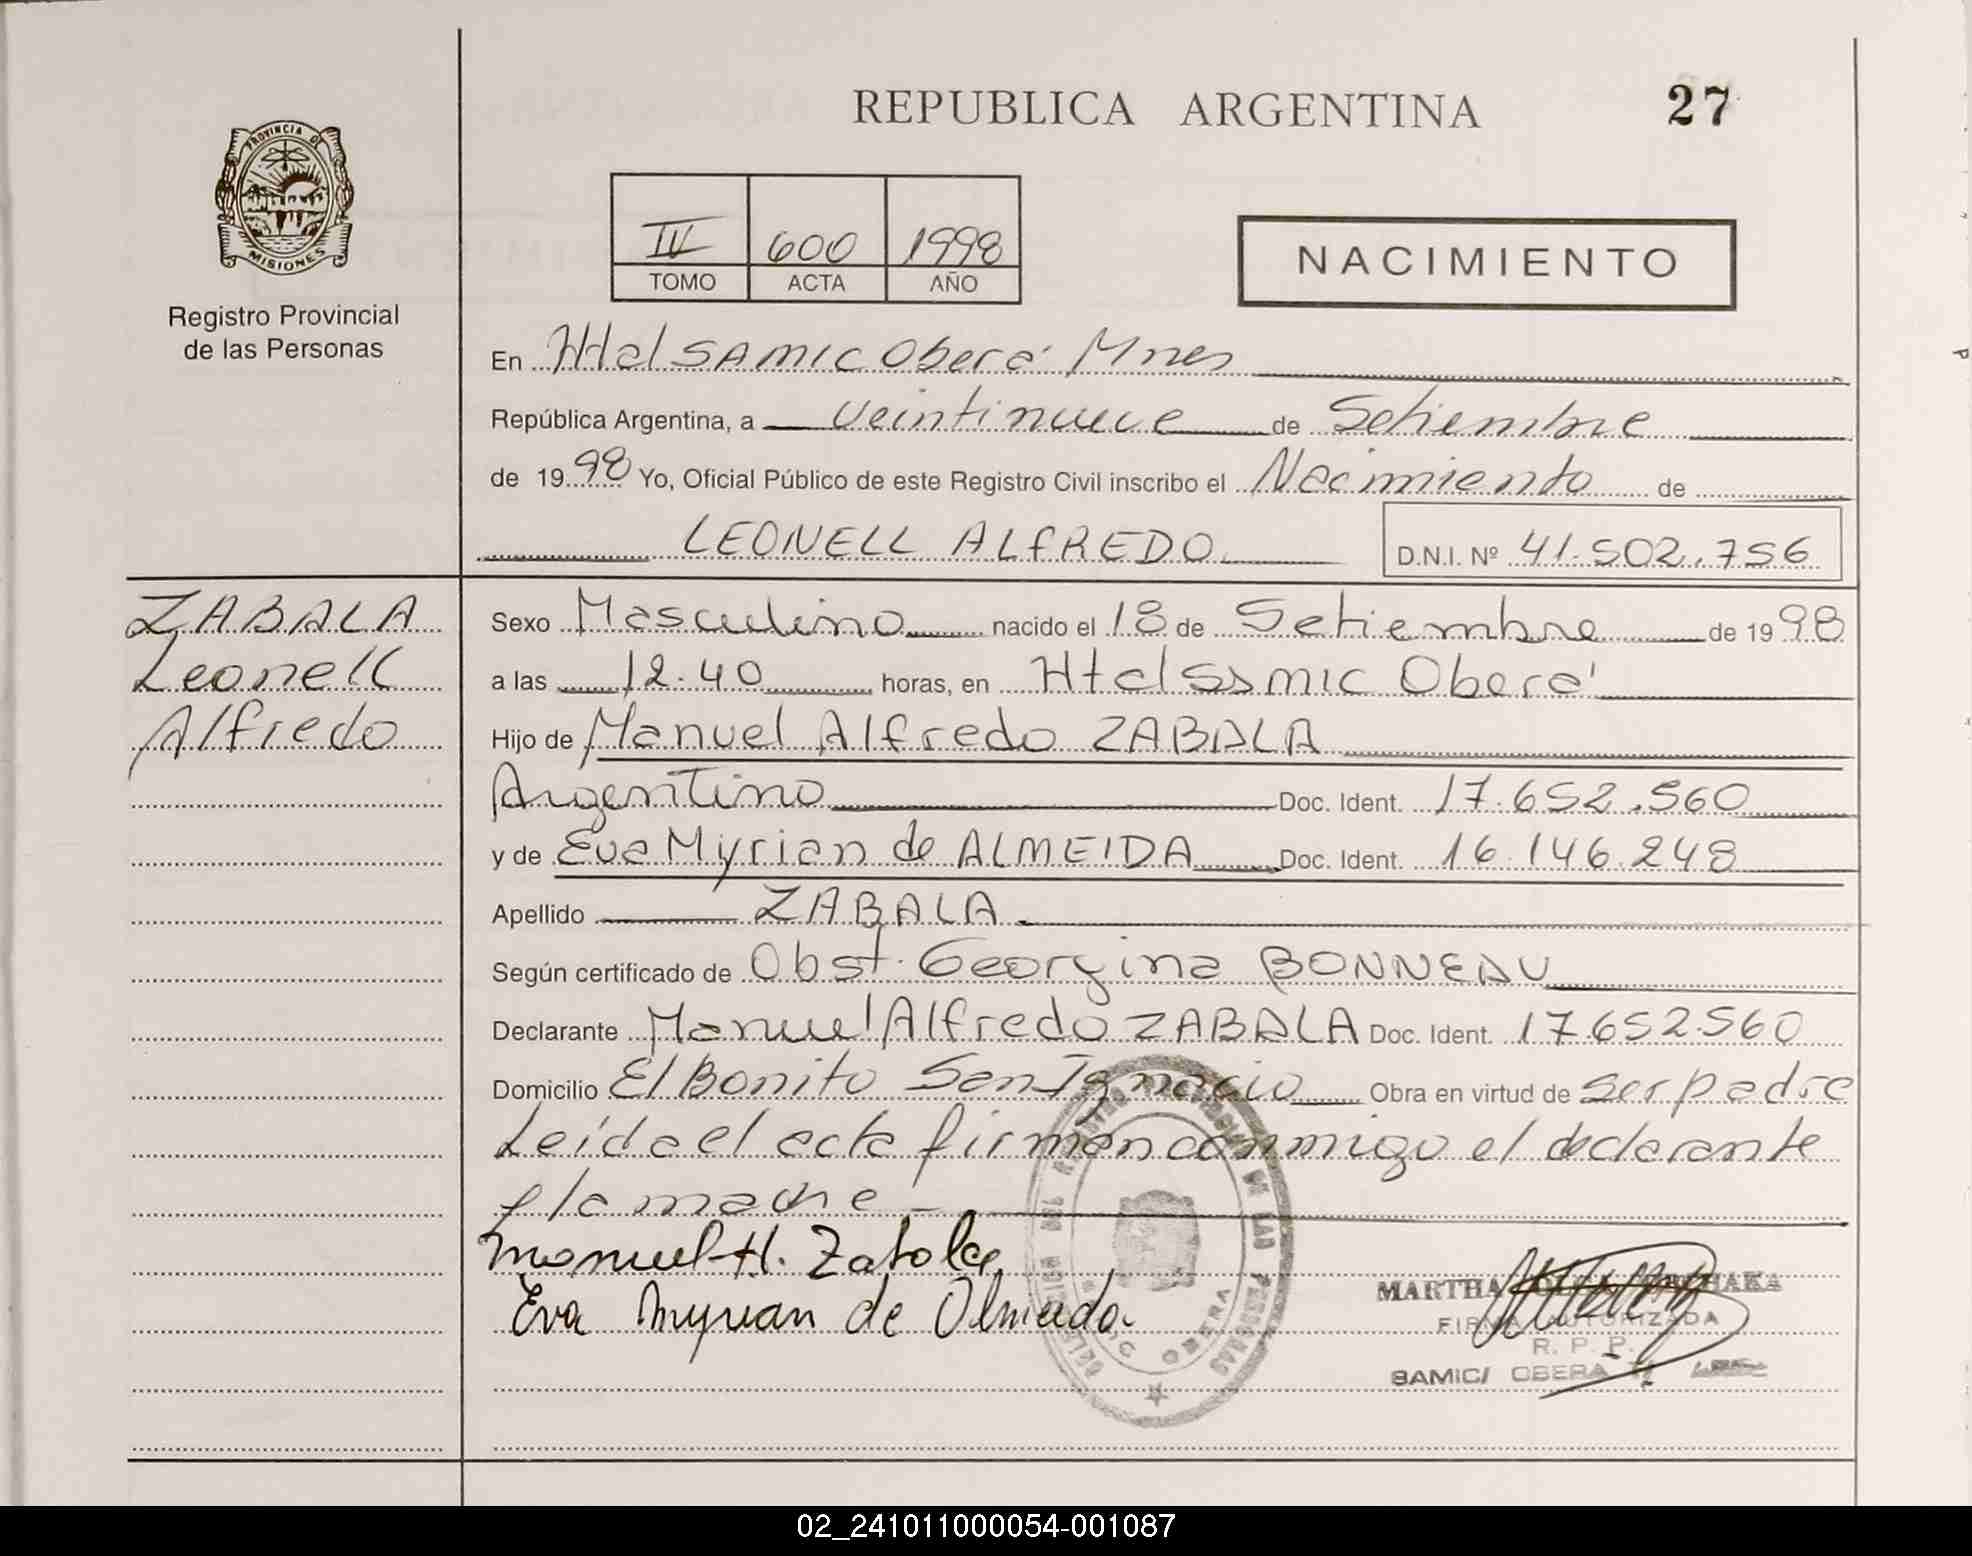 REPUBLICA ARGENTINA
27
PROVINCIA DE
MISIONES
Registro Provincial
de las Personas
IV 600 1998
TOMO ACTA AÑO
NACIMIENTO
En Htal SAMIC Oberá Mnes
República Argentina, a veintinueve de Setiembre
de 1998 Yo, Oficial Público de este Registro Civil inscribo el Nacimiento de
LEONELL ALFREDO D.N.I. Nº 41.502.756
ZABALA
Leonell
Alfredo
Sexo Masculino nacido el 18 de Setiembre de 1998
a las 12.40 horas, en Htal Samic Oberá
Hijo de Manuel Alfredo ZABALA
Argentino Doc. Ident. 17.652.560
y de Eva Myrian de ALMEIDA Doc. Ident. 16.146.248
Apellido ZABALA
Según certificado de Obst. Georgina BONNEAU
Declarante Manuel Alfredo ZABALA Doc. Ident. 17.652.560
Domicilio El Bonito San Ignacio Obra en virtud de ser padre
Leída el acta firman conmigo el declarante
y la madre
Manuel A. Zabala
Eva Myrian de Olmeida
MARTHA
FIRMA AUTORIZADA
R. P. P.
SAMIC/ OBERA
DELEGACION DEL REGISTRO PROVINCIAL DE LAS PERSONAS
OBERA
02_241011000054-001087